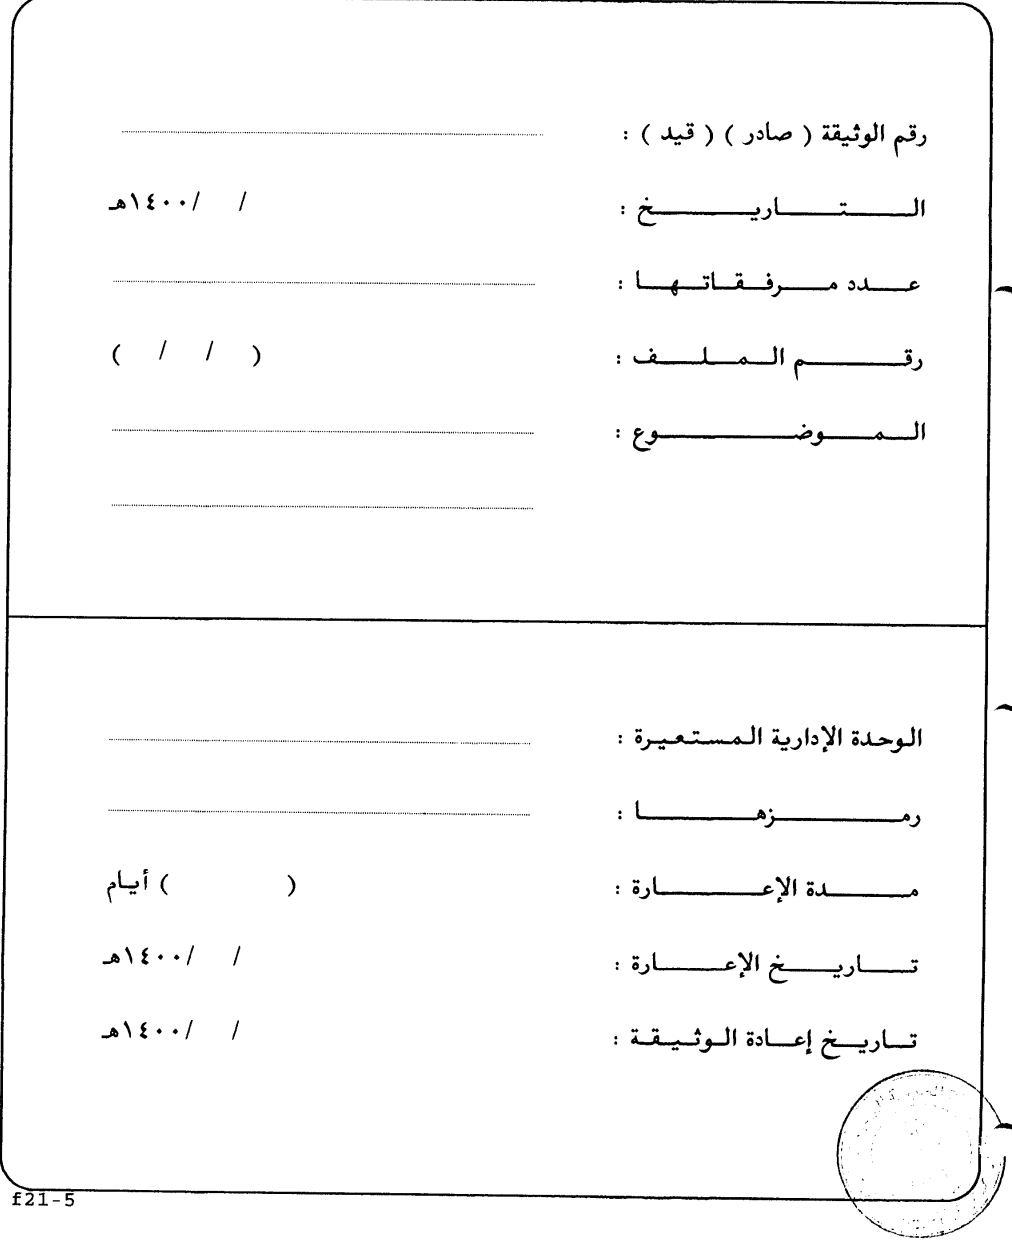 رقم الوثيقة ( صادر ) ( قيد ) :
التاريخ : / /١٤٠٠هـ
عدد مرفقاتها :
رقم الملف : ( / / )
الموضوع :
الوحدة الإدارية المستعيرة :
رمزها :
مدة الإعارة : ( ) أيام
تاريخ الإعارة : / /١٤٠٠هـ
تاريخ إعادة الوثيقة : / /١٤٠٠هـ
f21-5